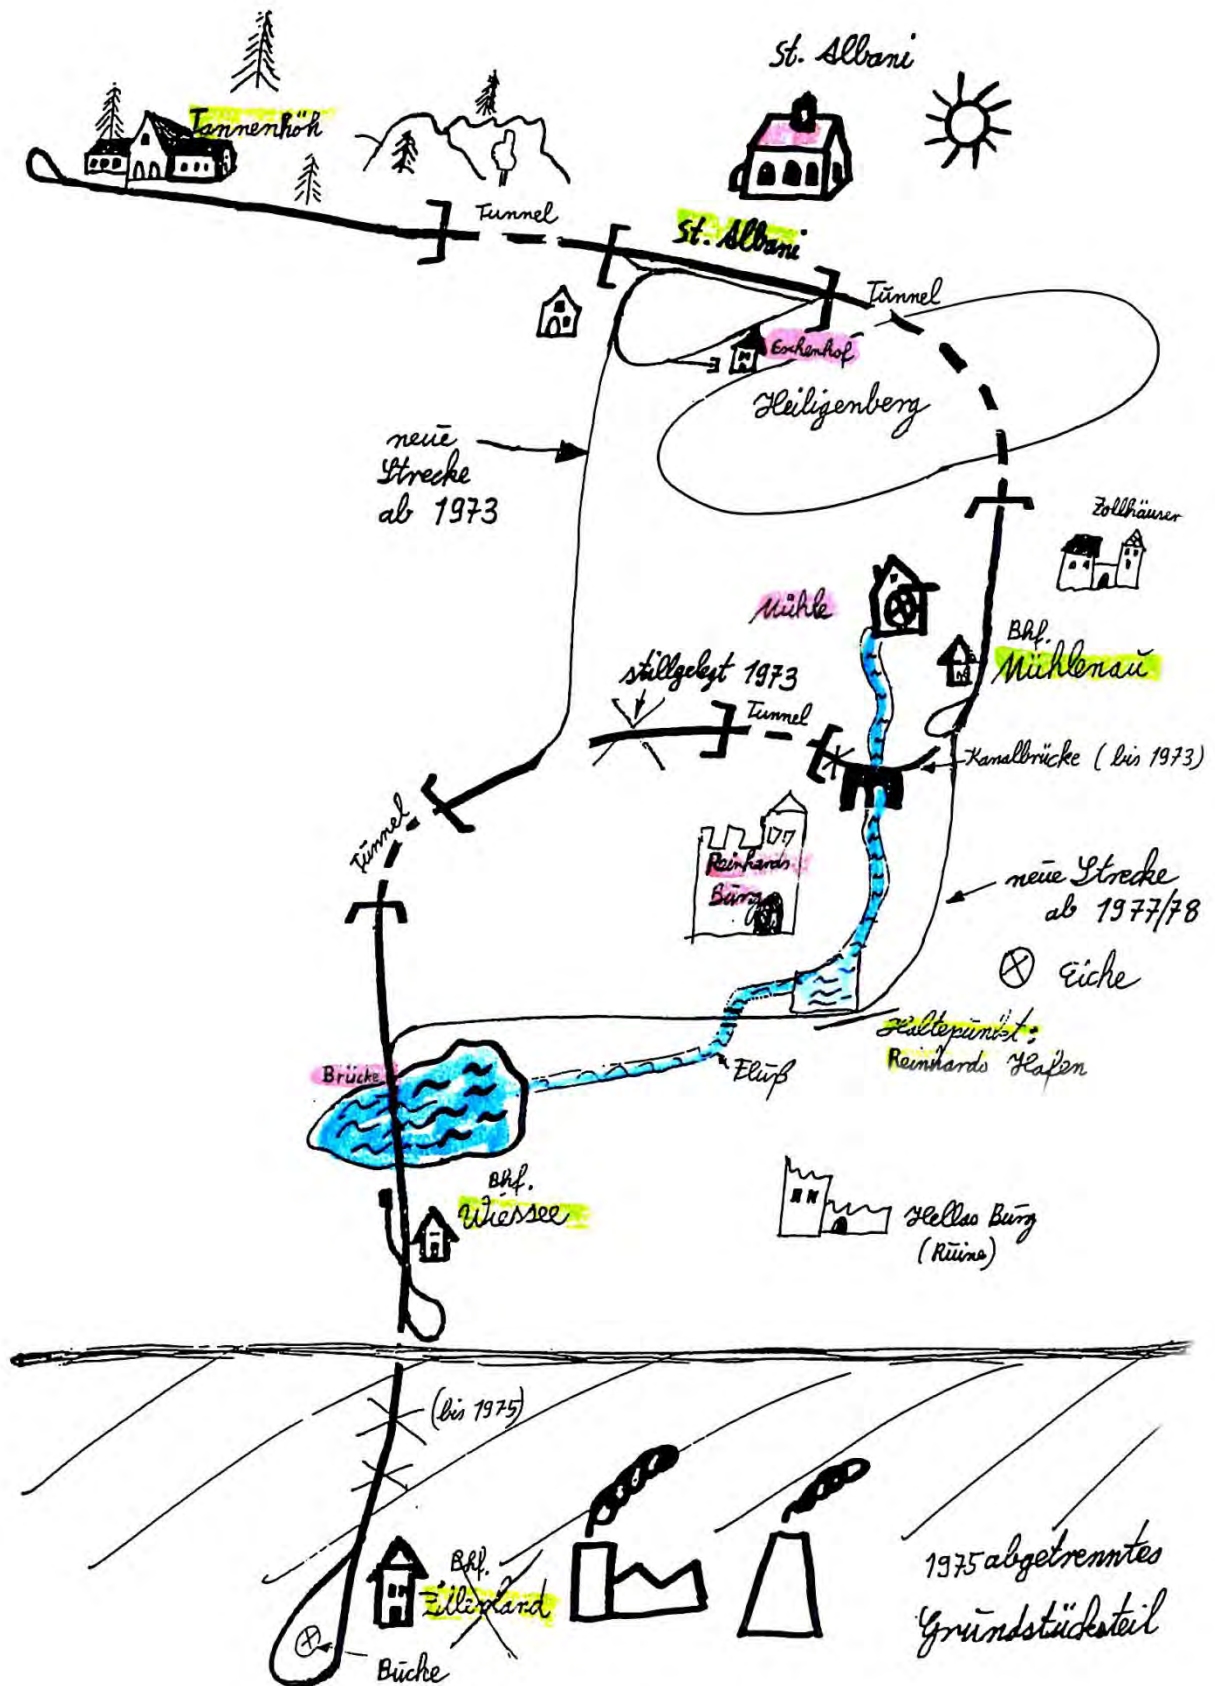 St. Albani
Tannenhöh
Tunnel
St. Albani
Tunnel
Eschenhof
Heiligenberg
neue
Strecke
ab 1973
Zollhäuser
Mühle
Bhf.
Mühlenau
stillgelegt 1973
Tunnel
Kanalbrücke (bis 1973)
Tunnel
Reinhards
Burg
neue Strecke
ab 1977/78
Eiche
Haltepunkt:
Reinhards Hafen
Fluß
Brücke
Bhf.
Wiessee
Hellas Burg
(Ruine)
(bis 1975)
Bhf.
Zillerland
1975 abgetrenntes
Grundstücksteil
Buche